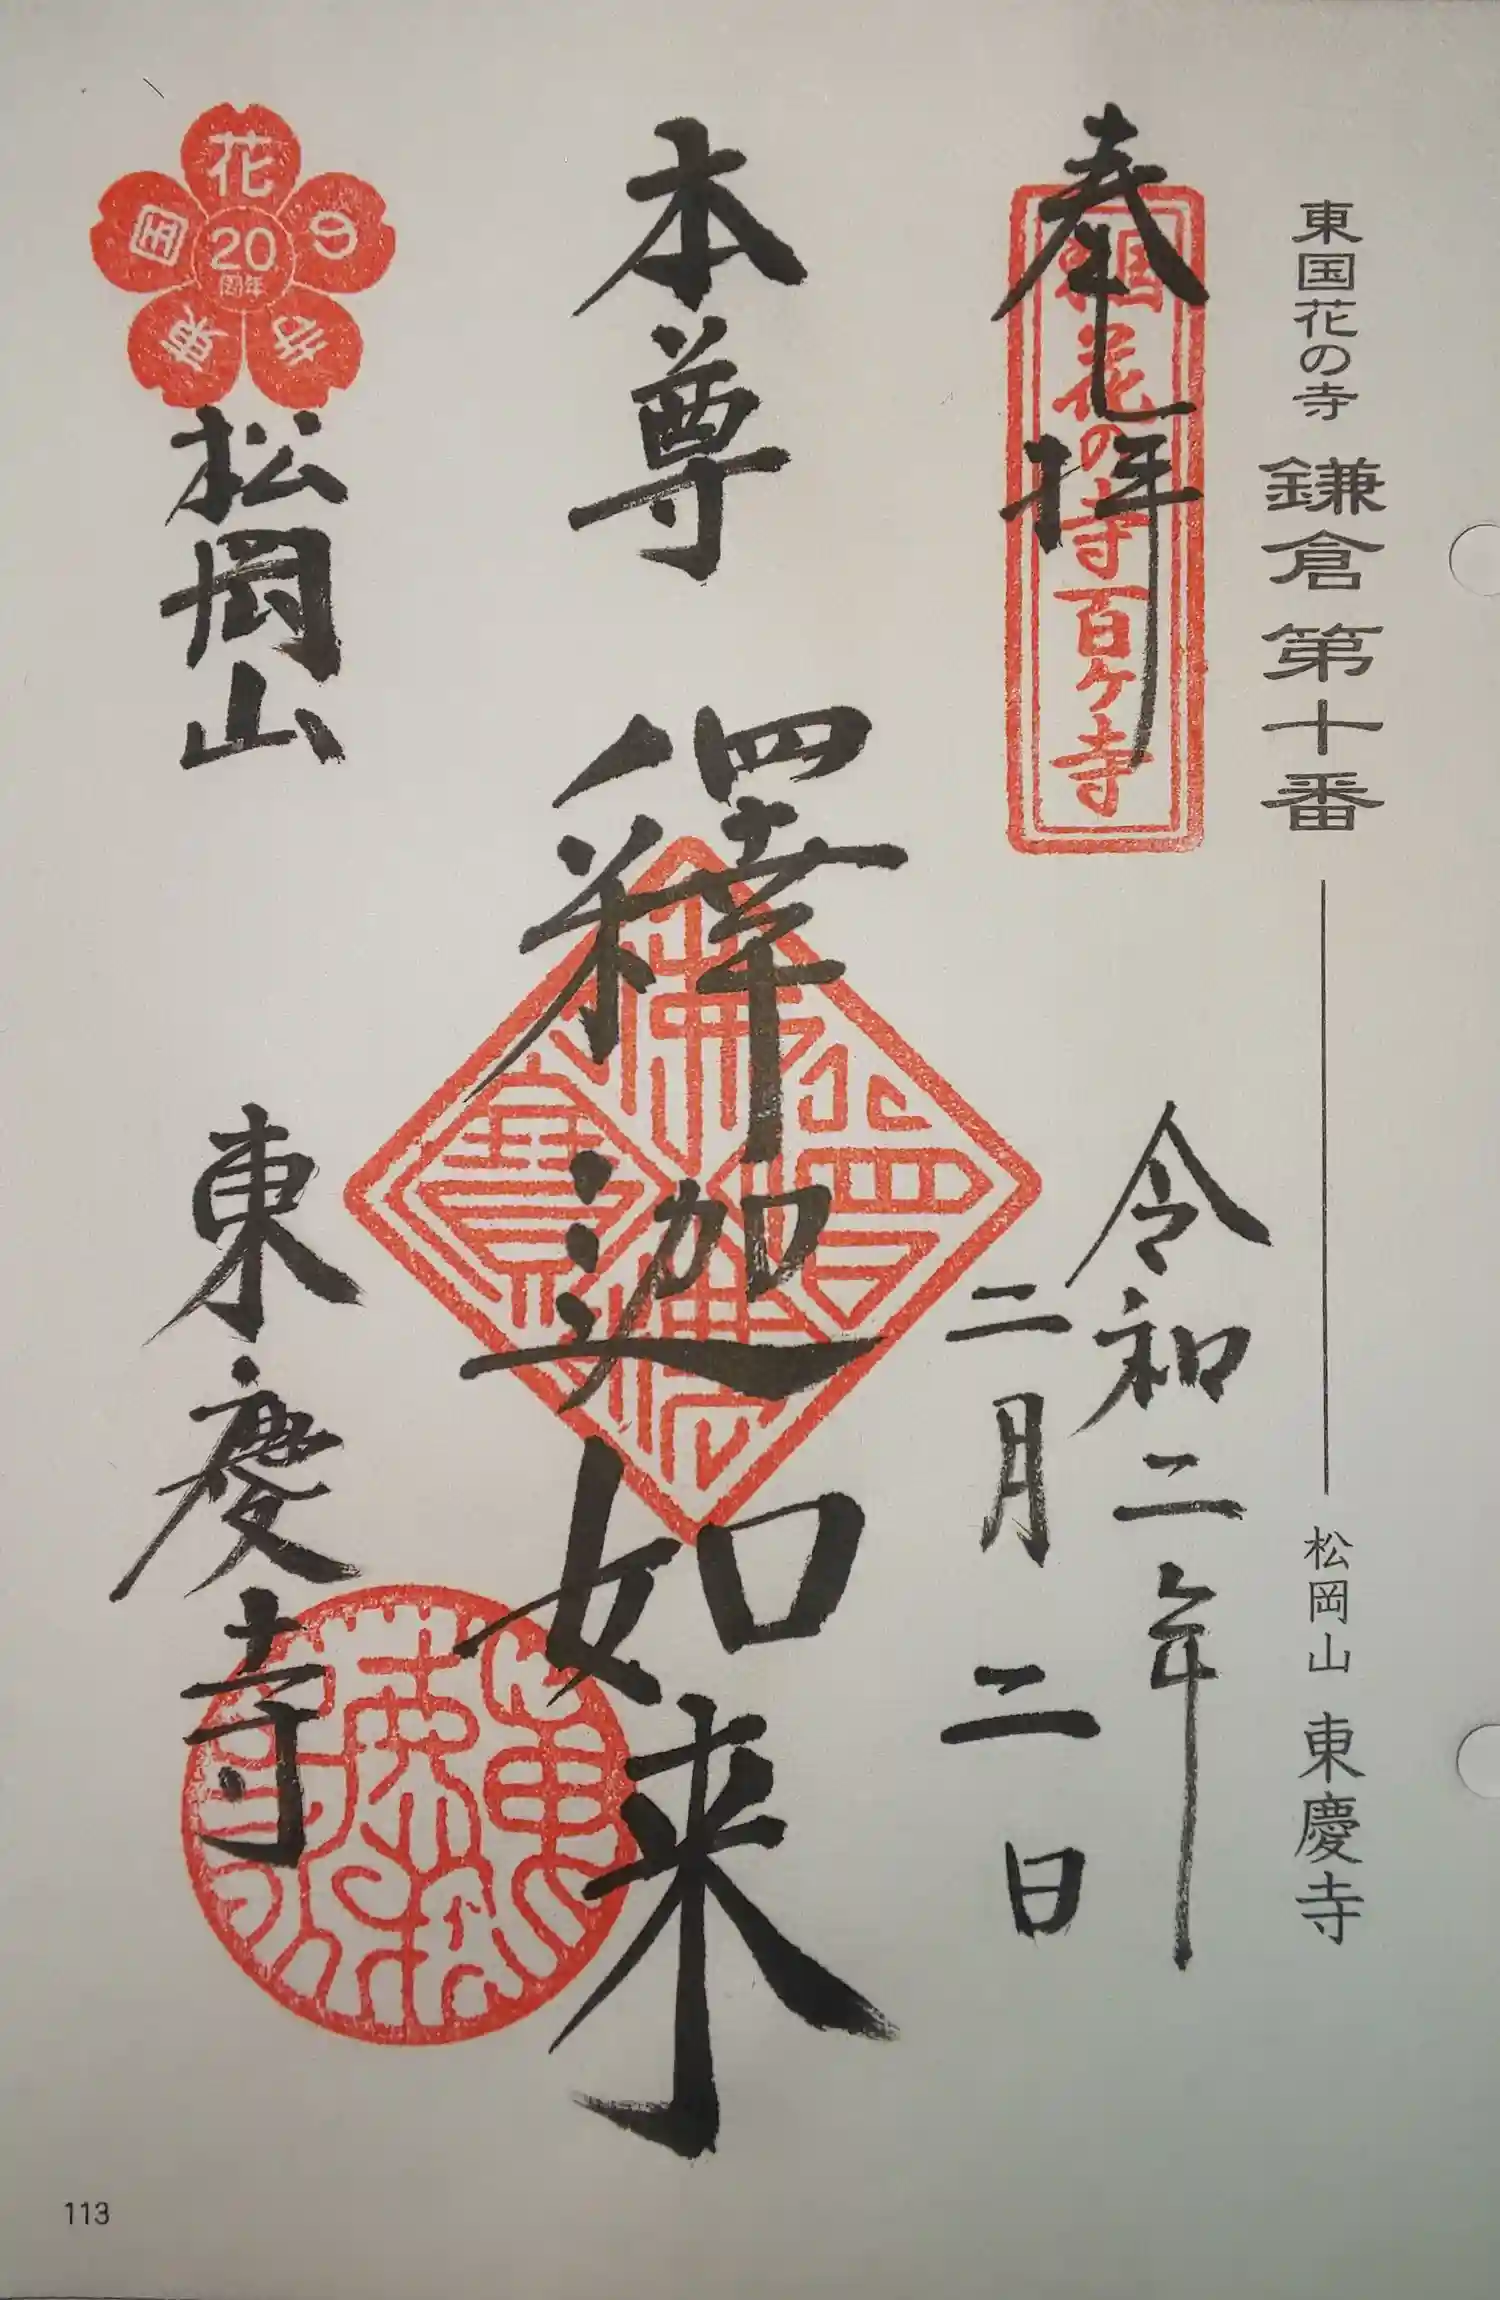 東国花の寺 鎌倉第十番 松岡山 東慶寺
奉拝
東国花の寺百ケ寺
令和二年
二月二日
本尊 釋迦如来
佛法僧寶
花の寺東国
20
周年
松岡山 東慶寺
113